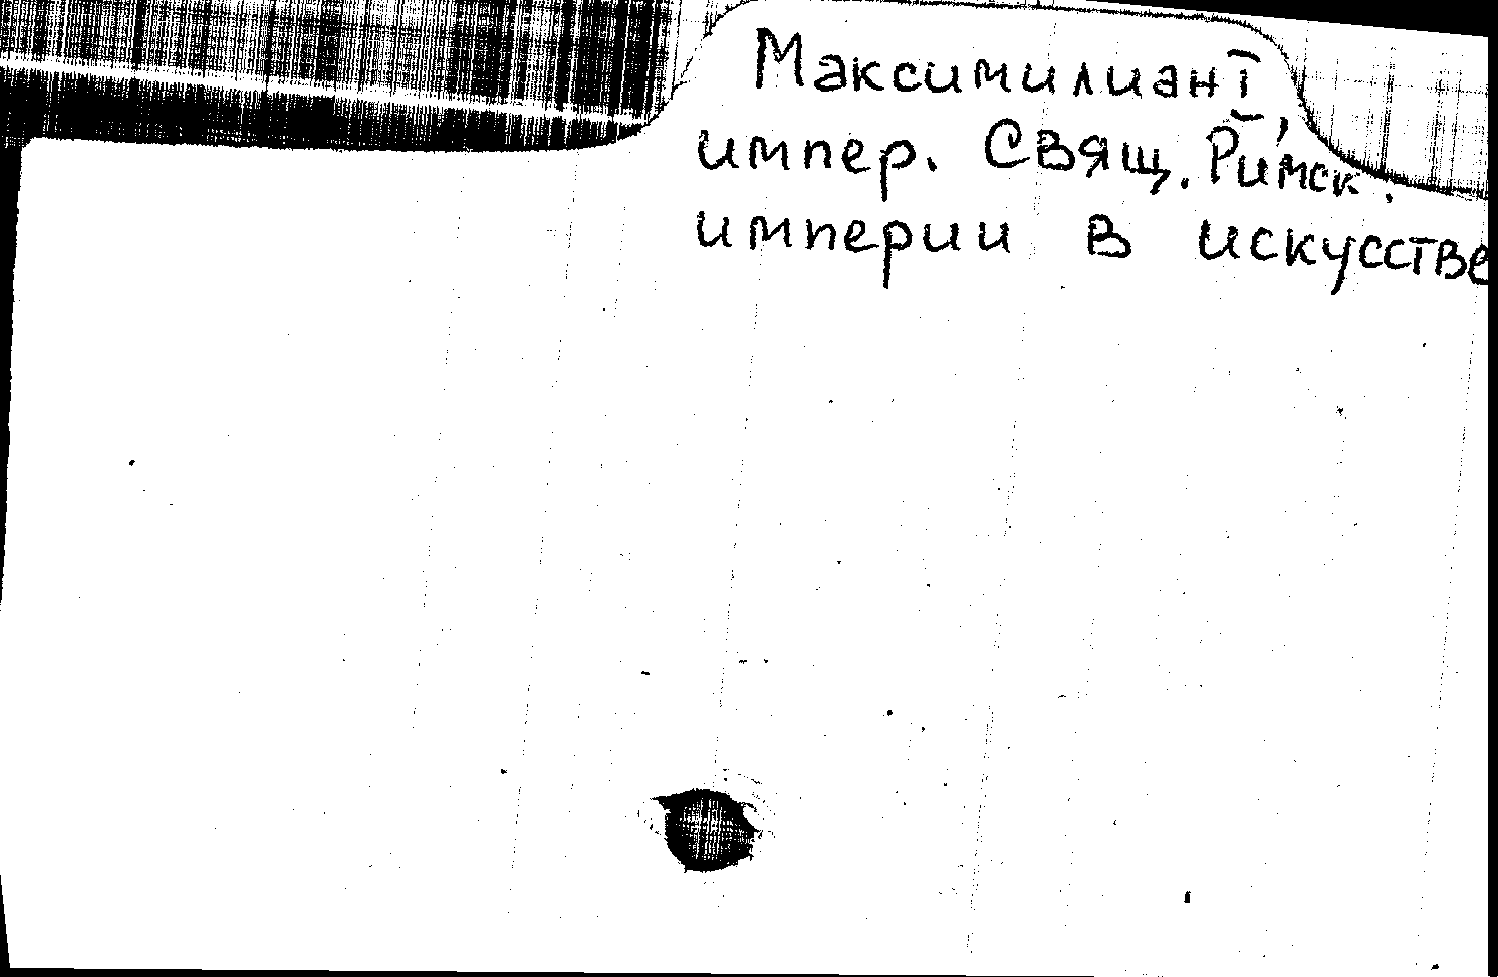 Максимилиан I,
импер. Свящ. Римск.
империи в искусстве